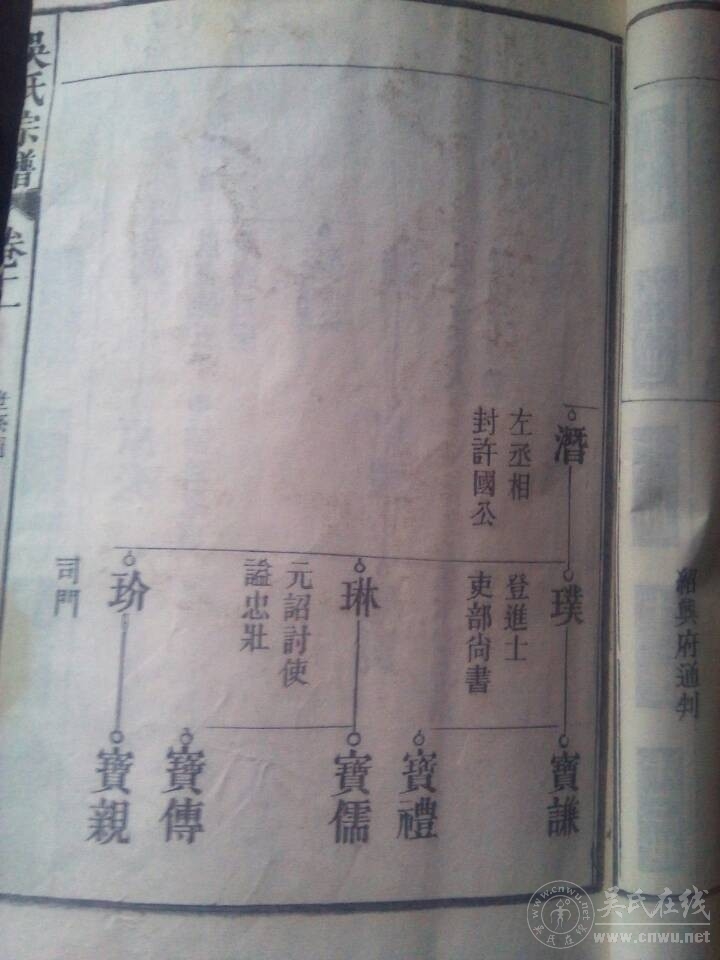 紹興府通判
潛
左丞相
封許國公
璞
登進士
吏部尚書
琳
元詔討使
謚忠壯
玠
司門
寶謙
寶禮
寶儒
寶傳
寶親
吳氏宗譜
卷二
吴氏在线
www.cnwu.net